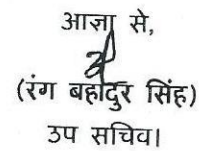 आज्ञा से,
(रंग बहादुर सिंह)
उप सचिव।